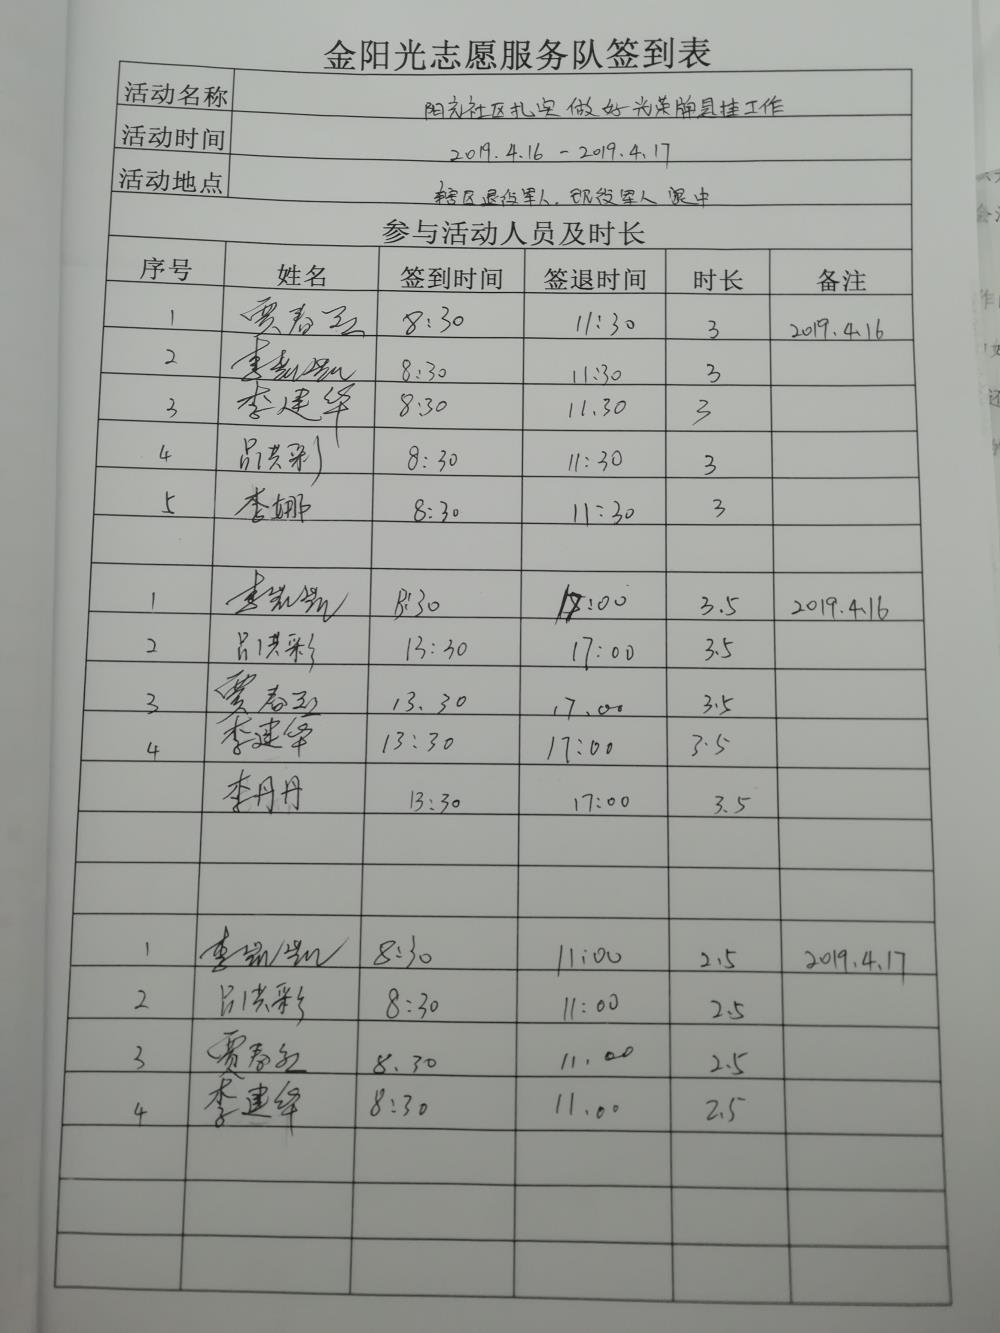 金阳光志愿服务队签到表
活动名称 阳光社区扎实做好光荣牌悬挂工作
活动时间 2019.4.16 - 2019.4.17
活动地点 辖区退役军人.现役军人家中
参与活动人员及时长
序号 姓名 签到时间 签退时间 时长 备注
1 贾春红 8:30 11:30 3 2019.4.16
2 李凯凯 8:30 11:30 3
3 李建华 8:30 11.30 3
4 吕洪彩 8:30 11:30 3
5 李娜 8:30 11:30 3
1 李凯凯 13:30 17:00 3.5 2019.4.16
2 吕洪彩 13:30 17:00 3.5
3 贾春红 13.30 17.00 3.5
4 李建华 13:30 17:00 3.5
李丹丹 13:30 17:00 3.5
1 李凯凯 8:30 11:00 2.5 2019.4.17
2 吕洪彩 8:30 11:00 2.5
3 贾春红 8.30 11.00 2.5
4 李建华 8:30 11.00 2.5